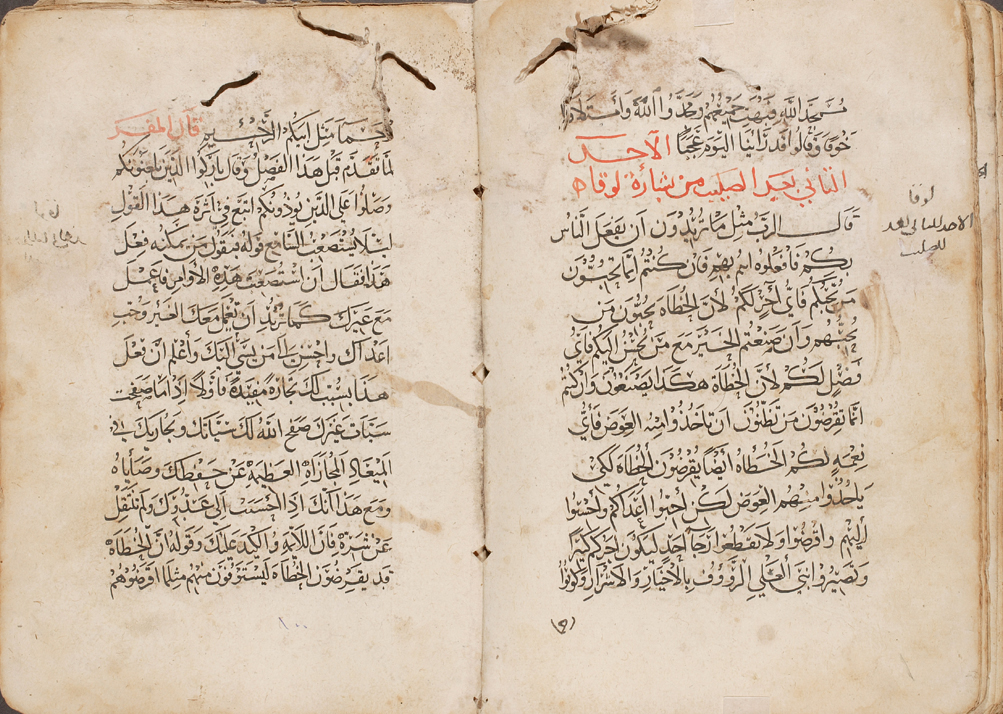 تمجد الله فبهت جميعهم ومجدوا الله وامتلاوا
خوفا وقالوا قد راينا اليوم عجبا الاحد
الثاني بعد الصليب من بشارة لوقا
قال الرب مثل ما تريدون ان يفعل الناس
بكم فافعلوه انتم بهم فان كنتم انما تحبون
من يحبكم فاي اجر لكم لان الخطاه يحبون من
يحبهم وان صنعتم الخير مع من يحسن اليكم فاي
فضل لكم لان الخطاه هكذا يصنعون وان كنتم
انما تقرضون من تظنون ان تاخذوا منه العوض فاي
نعمه لكم الخطاه ايضا يقرضون الخطاه لكي
ياخذوا منهم العوض لكن احبوا اعداكم واحسنوا
اليهم واقرضوا ولا تقطعوا رجا احد ليكون اجركم كثيرا
وتصيروا بني العلي الرووف بالاخيار والاشرار وكونوا
لوقا
الاحد الثاني بعد
الصليب
رحما مثل ابيكم الرحيم قال المفسر
لما تقدم قبل هذا الفصل وقال باركوا الذين يلعنونكم
وصلوا على الذين يوذونكم اتبع في اثره هذا القول
ليلا يستصعب السامع قوله فيقول من يمكنه فعل
هذا فقال ان استصعبت هذه الاوامر فاعمل
مع غيرك كما تريد ان يعمل معك الغير وحب
اعداك واحسن الى من يسي اليك واعلم ان فعل
هذا يسبب لك تجارة مفيدة فاولا اذا ما صفحت
سيات غيرك صفح الله لك سياتك ويجازيك في
الميعاد المجازاه العظيمة عن حفظك وصاياه
ومع هذا انك اذا احسنت الى عدوك ولم تنتقل
عن شره فان اللايمه والكيد عليك وقوله ان الخطاه
قد يقرضون الخطاه ليستوفون منهم مثلما اقرضوهم
١٠٠